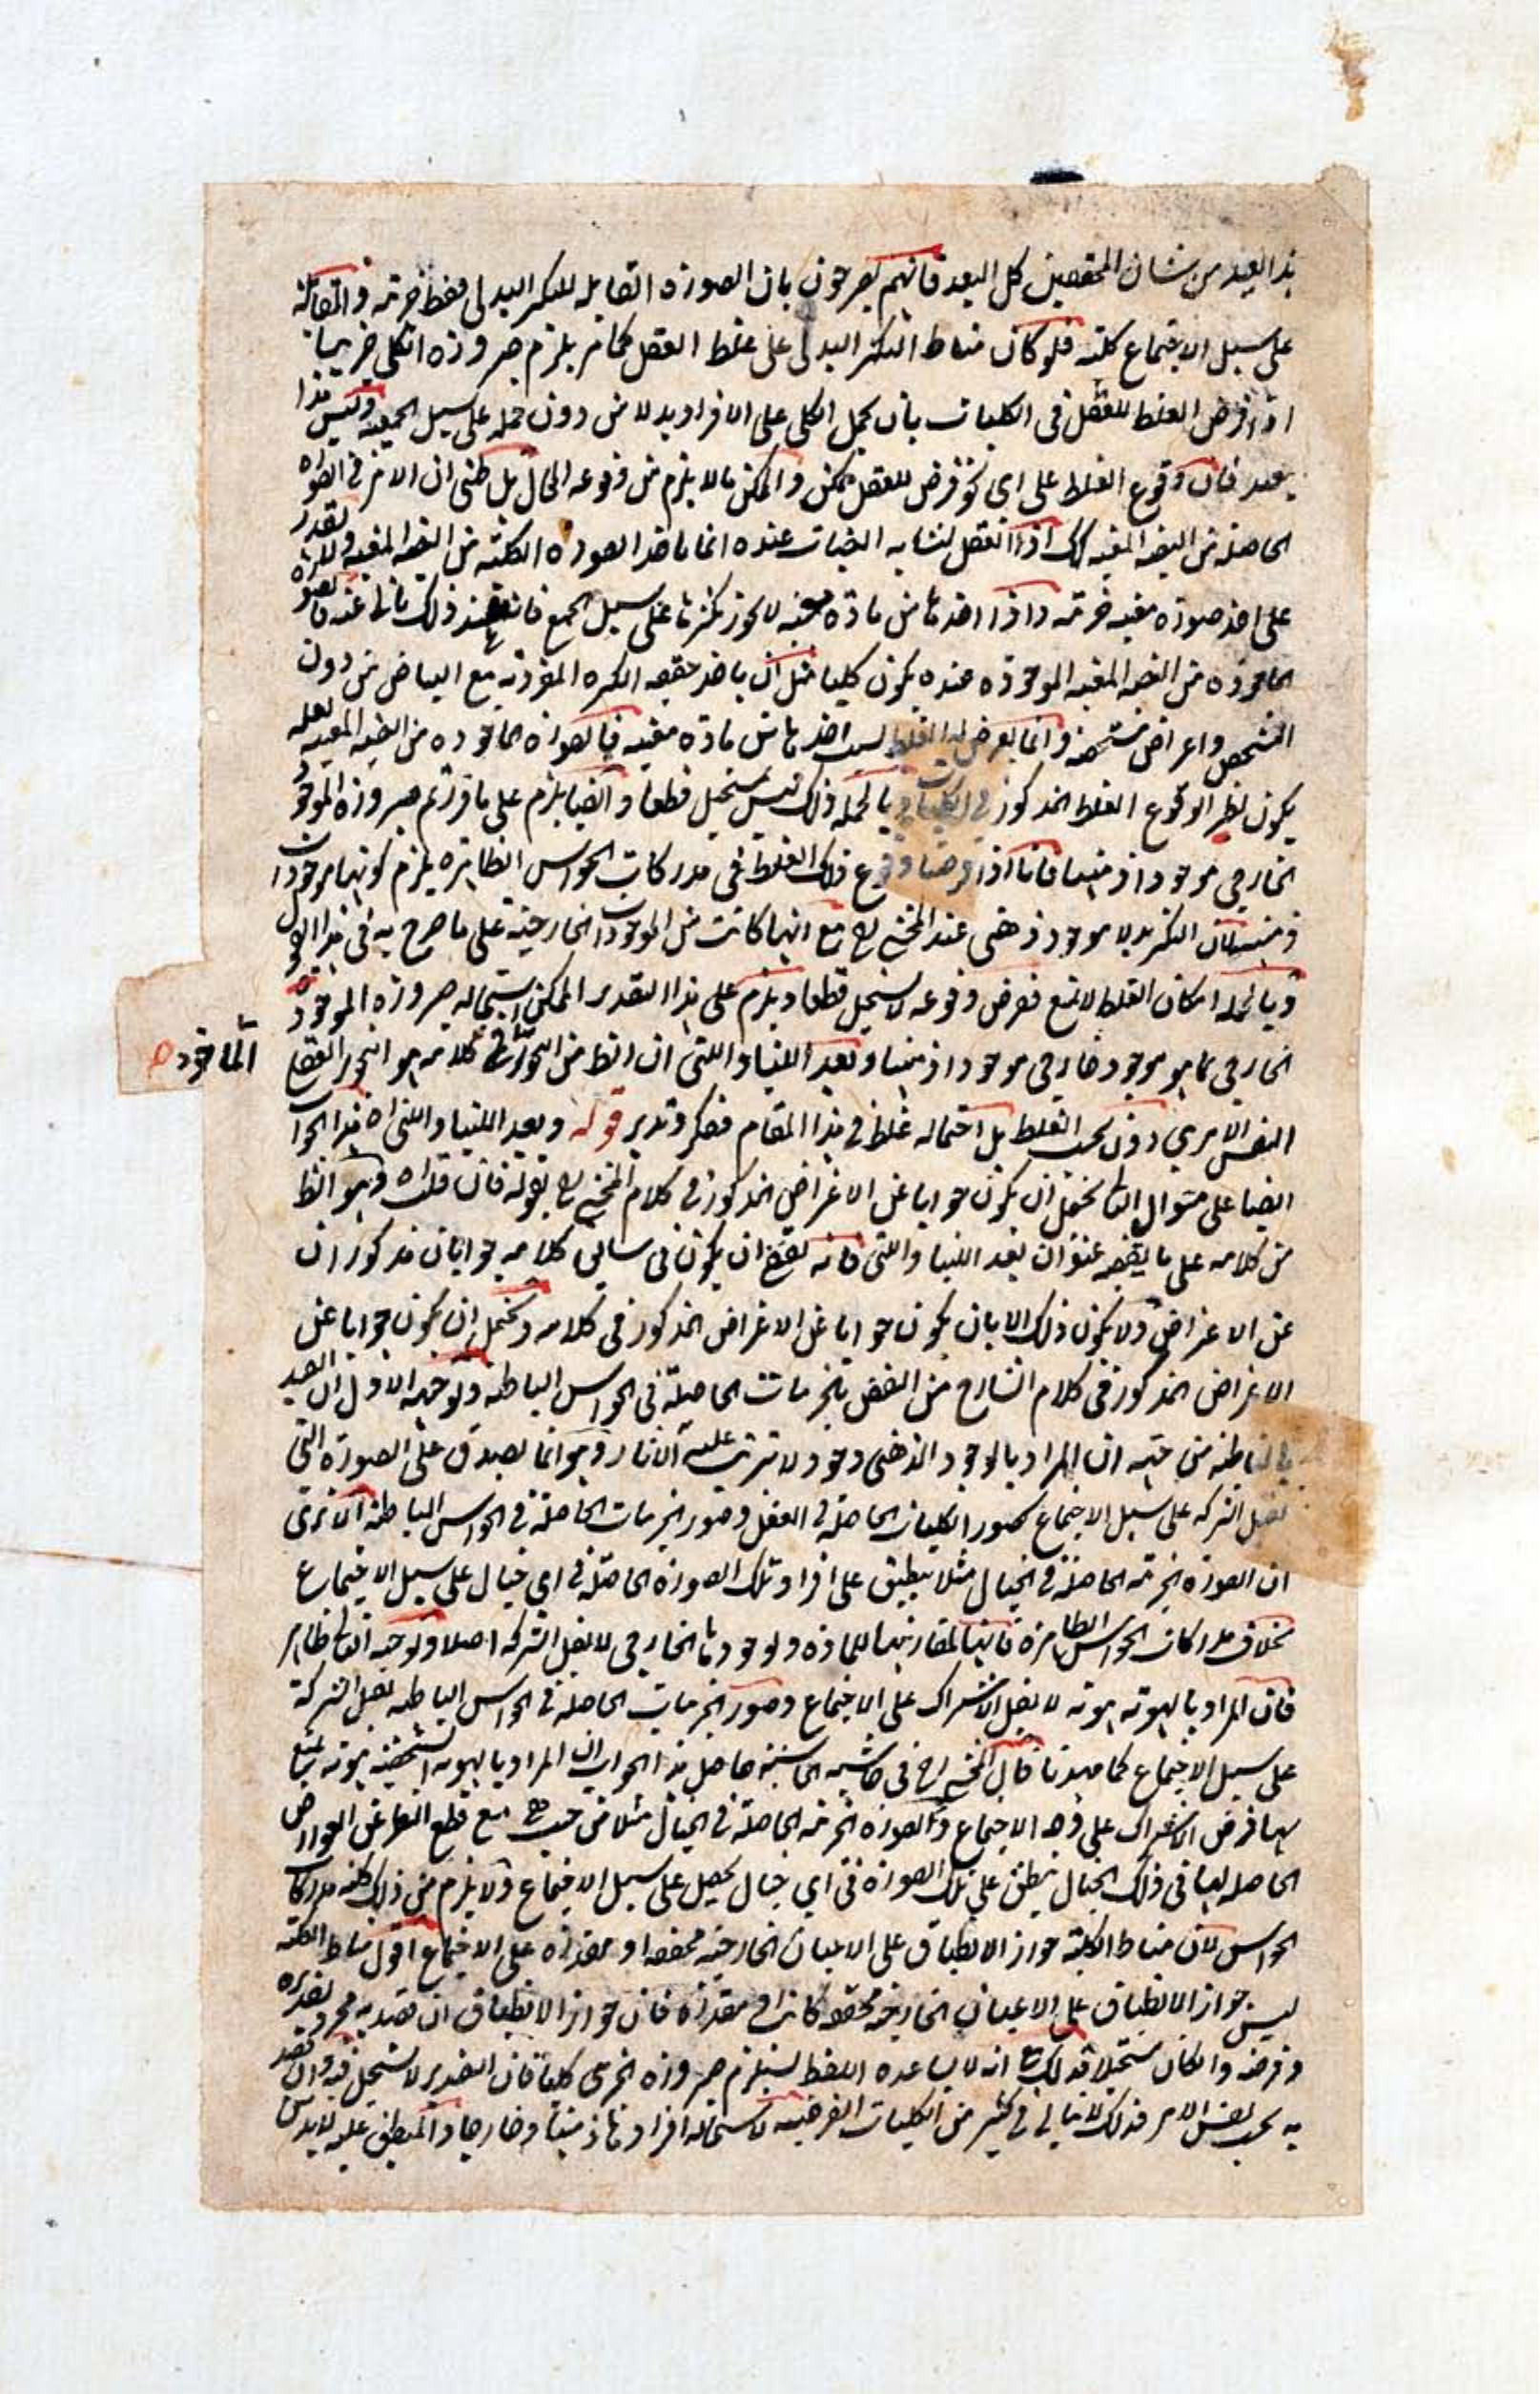 هذا البعيد من شان المحققين كل البعد فانهم يصرحون بان الصورة القابله للتكثر البدلى فقط جزئيه والقابلة
على سبيل الاجتماع كليه فلو كان مناط التكثر البدلى على غلط العقل كما مر يلزم صيرورة الكلى جزئيا
اذا فرض الغلط للعقل فى الكليات بان يحمل الكلى على الافراد بدلا من دون حمله على سبيل الجمعيه وليس هذا
ببعيد فان وقوع الغلط على اى نحو فرض للعقل ممكن والممكن ما لا يلزم من وقوعه المحال بل ظنى ان الامر فى الصورة
الحاصلة من البيضه المعينه كك اذ العقل لتشابه البيضات عنده انما ياخذ الصورة الكلية من البيضه المعينه
على اخذ صورة معينه جزئيه واذا اخذها من مادة معينه لا يجوز تكثرها على سبيل الجمع
الماخوذه من البيضه المعينه الموجوده عنده يكون كليا مثل ان ياخذ حقيقه الكره المقرونه مع البياض من دون
التشخص واعراض مشخصه وانما يعرض له الغلط لسبب اخذها من مادة معينه فالصورة الماخوده من البيضه المعينه لعله
يكون نظير الوقوع الغلط المذكور فى الكليات وبالجمله ذلك ليس بمستحيل قطعا وايضا يلزم على ما قررتم صيرورة الموجود
الخارجى موجودا ذهنيا فانا اذا فرضنا وقوع ذلك الغلط فى مدركات الحواس الظاهره يلزم كونها موجودات
ذهنيه لان التكثر بدلا موجود ذهنى عند المحشى رح مع انها كانت من الموجودات الخارجية على ما صرح به فى هذا القول
وبالجمله امكان الغلط لا يمنع فرض وقوعه لا يستحيل قطعا ويلزم على هذا التقدير الممكن استحاله صيرورة الموجود
الماخوذه
الخارجى بما هو موجود خارجى موجودا ذهنيا وبعد اللتيا والتى ان الظ من التجويز فى كلامه هو التجويز العقلى
النفس الامرى دون بحسب الغلط بل احتماله غلط فى هذا المقام فتفكر وتدبر قوله وبعد اللتيا والتى اه هذا الجواب
ايضا على منوال السابق يحتمل ان يكون جوابا عن الاعتراض المذكور فى كلام المحشى رح بقوله فان قلت اه وهو الظ
من كلامه على ما يقتضيه عنوان بعد اللتيا والتى فانه يقتضى ان يكون فى سابق كلامه جوابان مذكوران
عن الاعتراض ولا يكون ذلك الا بان يكون جوابا عن الاعتراض المذكور فى كلامه ويحتمل ان يكون جوابا عن
الاعتراض المذكور فى كلام الشارح من النقض بالجزئيات الحاصلة فى الحواس الباطنه وتوجيه الاول ان القيد
فى الباطنه من حيث ان المراد بالوجود الذهنى وجود لا تترتب عليه الاثار وهو انما يصدق على الصورة التى
تقبل الشركه على سبيل الاجتماع كصور الكليات الحاصله فى العقل وصور الجزئيات الحاصلة فى الحواس الباطنه الا ترى
ان الصورة الجزئيه الحاصلة فى الخيال مثلا ينطبق على افراد تلك الصورة الحاصلة فى اى خيال على سبيل الاجتماع
بخلاف مدركات الحواس الظاهرة فانها لمقارنتها للمادة ولوجودها الخارجى لا تقبل الشركه اصلا وتوجيه الثانى ظاهر
فان المراد بالهويه هويه لا تقبل الاشتراك على الاجتماع وصور الجزئيات الحاصله فى الحواس الباطنه تقبل الشركة
على سبيل الاجتماع كما مهدنا قال المحشى رح فى حاشية الحاشيه حاصل هذا الجواب ان المراد بالهويه الشخصيه هويه يمتنع
بها فرض الاشتراك على وجه الاجتماع والصورة الجزئيه الحاصلة فى الخيال مثلا من حيث هى مع قطع النظر عن العوارض
الحاصله لها فى ذلك الخيال ينطبق على تلك الصورة فى اى خيال يحصل على سبيل الاجتماع ولا يلزم من ذلك كليه مدركات
الحواس لان مناط الكلية جواز الانطباق على الاعيان الخارجيه محققه او مقدره على الاجتماع اقول مناط الكليه
ليس جواز الانطباق على الاعيان الخارجيه محققه كانت او مقدره فان جواز الانطباق ان قصد به مجرد تقديره
وفرضه وان كان مستحيلا فذلك مع انه لا يساعده اللفظ يستلزم صيرورة الجزئى كليا فان التقدير لا يستحيل فيه وان قصد
به بحسب نفس الامر فذلك لا يتاتى فى كثير من الكليات الفرضيه لاستحاله افرادها ذهنا وخارجا والمنطبق عليه لابد من